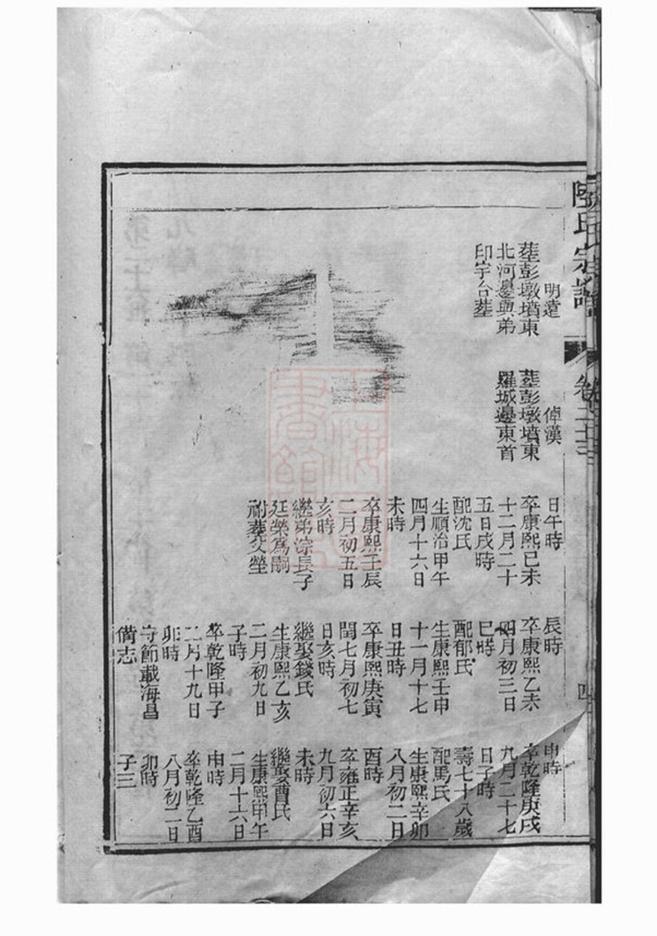 氏宗譜
卷二十三
四
明遠
塟彭墩墳東
北河邊與弟
印宇合塟
倬漢
塟彭墩墳東
羅城邊東首
日午時
卒康熙己未
十二月二十
五日戌時
配沈氏
生順治甲午
四月十六日
未時
卒康熙壬辰
二月初五日
亥時
繼弟淙長子
廷榮爲嗣
祔葬父塋
辰時
卒康熙乙未
四月初三日
巳時
配郁氏
生康熙壬申
十一月十七
日丑時
卒康熙庚寅
閏七月初七
日亥時
繼娶錢氏
生康熙乙亥
二月初九日
子時
卒乾隆甲子
二月十九日
卯時
守節載海昌
備志
申時
卒乾隆庚戌
九月二十七
日子時
壽七十八歲
配馬氏
生康熙辛卯
八月初二日
酉時
卒雍正辛亥
九月初六日
未時
繼娶曹氏
生康熙甲午
二月十六日
申時
卒乾隆乙酉
八月初二日
卯時
子三